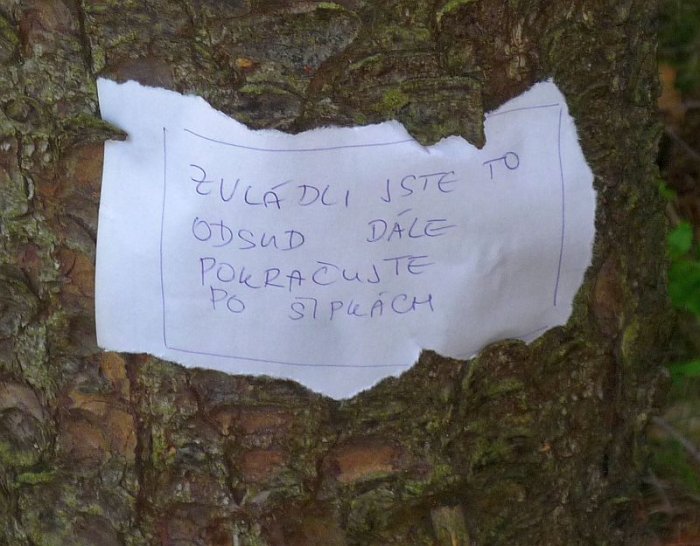 ZVLÁDLI JSTE TO
ODSUD DÁLE
POKRAČUJTE
PO ŠIPKÁCH